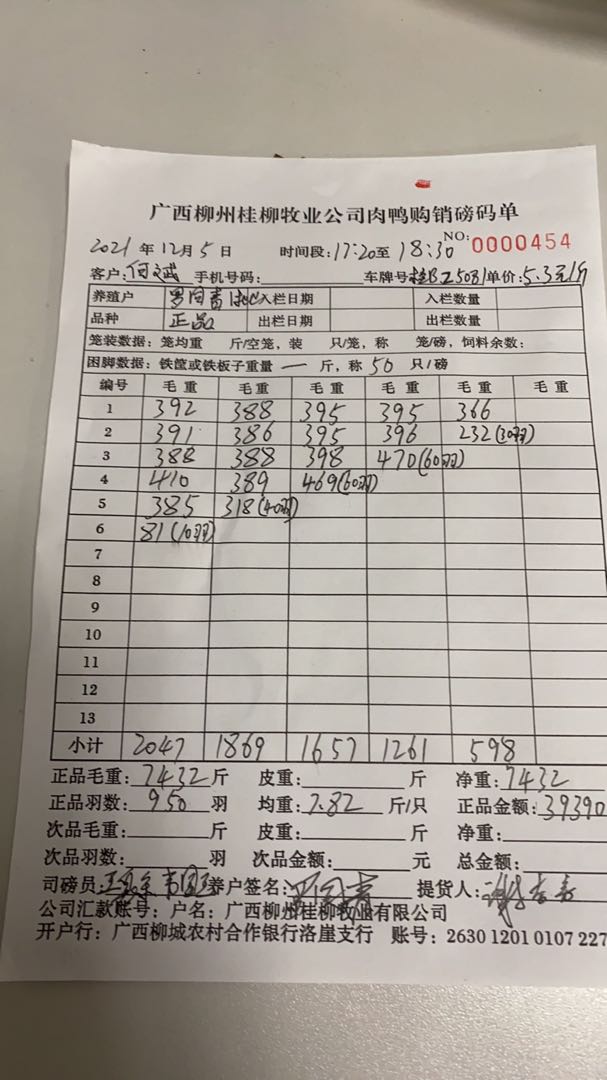 广西柳州桂柳牧业公司肉鸭购销磅码单
2021 年 12 月 5 日 时间段: 17:20 至 18:30 NO: 0000454
客户: 何斌 手机号码: 车牌号 桂BZ5081 单价: 5.3元/斤
养殖户 罗向青 入栏日期 入栏数量
品种 正品 出栏日期 出栏数量
笼装数据: 笼均重 斤/空笼, 装 只/笼, 称 笼/磅, 饲料余数:
困脚数据: 铁筐或铁板子重量 — 斤, 称 50 只/磅
编号 毛重 毛重 毛重 毛重 毛重 毛重
1 392 388 395 395 366
2 391 386 395 396 232(30羽)
3 388 388 398 470(60羽)
4 410 389 469(60羽)
5 385 318(40羽)
6 81(10羽)
7
8
9
10
11
12
13
小计 2047 1869 1657 1261 598
正品毛重: 7432 斤 皮重: 斤 净重: 7432
正品羽数: 950 羽 均重: 7.82 斤/只 正品金额: 39390
次品毛重: 斤 皮重: 斤 净重:
次品羽数: 羽 次品金额: 元 总金额:
司磅员: 养户签名: 罗向青 提货人:
公司汇款账号: 户名: 广西柳州桂柳牧业有限公司
开户行: 广西柳城农村合作银行洛崖支行 账号: 2630 1201 0107 227